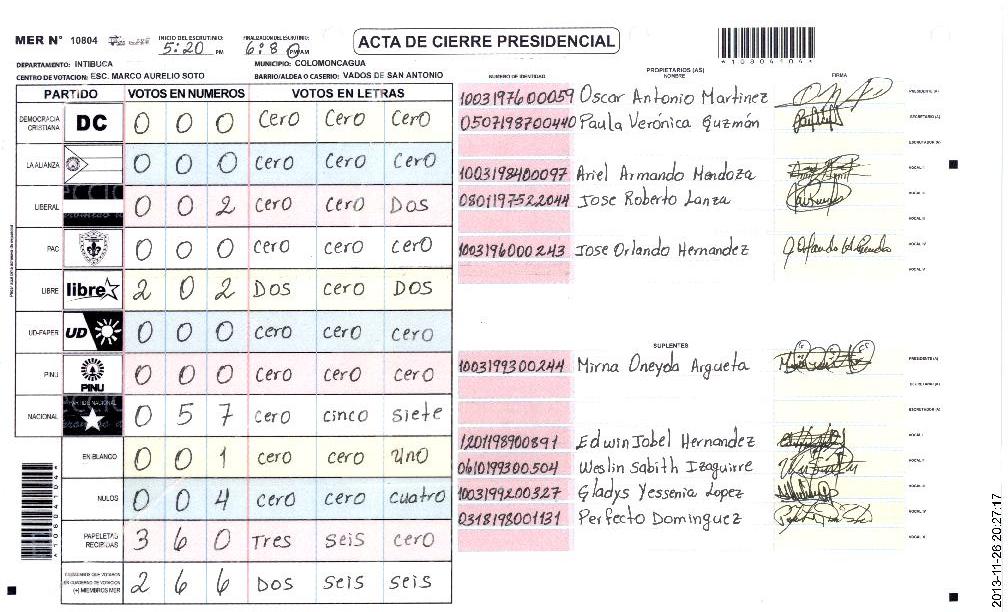 MER N° 10804
INICIO DEL ESCRUTINIO: 5:20 PM
FINALIZACION DEL ESCRUTINIO: 6:8 PM AM
ACTA DE CIERRE PRESIDENCIAL
DEPARTAMENTO: INTIBUCA
MUNICIPIO: COLOMONCAGUA
CENTRO DE VOTACION: ESC. MARCO AURELIO SOTO
BARRIO/ALDEA O CASERIO: VADOS DE SAN ANTONIO
PARTIDO VOTOS EN NUMEROS VOTOS EN LETRAS
DEMOCRACIA CRISTIANA DC 0 0 0 cero cero cero
LA ALIANZA 0 0 0 cero cero cero
LIBERAL 0 0 2 cero cero Dos
PAC 0 0 0 cero cero cero
LIBRE libre 2 0 2 Dos cero Dos
UD-FAPER UD 0 0 0 cero cero cero
PINU PINU 0 0 0 cero cero cero
NACIONAL 0 5 7 cero cinco siete
EN BLANCO 0 0 1 cero cero uno
NULOS 0 0 4 cero cero cuatro
PAPELETAS RECIBIDAS 3 6 0 Tres seis cero
CIUDADANOS QUE VOTARON EN CUADERNO DE VOTACION (+) MIEMBROS MER 2 6 6 Dos seis seis
NUMERO DE IDENTIDAD PROPIETARIOS (AS) NOMBRE FIRMA
1003197600059 Oscar Antonio Martinez PRESIDENTE (A)
0507198700440 Paula Verónica Guzmán SECRETARIO (A)
ESCRUTADOR (A)
1003198400097 Ariel Armando Mendoza VOCAL I
0801197522044 Jose Roberto Lanza VOCAL II
VOCAL III
1003196000243 Jose Orlando Hernandez VOCAL IV
VOCAL V
SUPLENTES
1003199300244 Mirna Oneyda Argueta PRESIDENTE (A)
SECRETARIO (A)
ESCRUTADOR (A)
1201198900891 Edwin Jobel Hernandez VOCAL I
0610199300504 Weslin Sabith Izaguirre
1003199200327 Gladys Yessenia Lopez
0318198001131 Perfecto Dominguez VOCAL IV
VOCAL V
2013-11-26 20:27:17